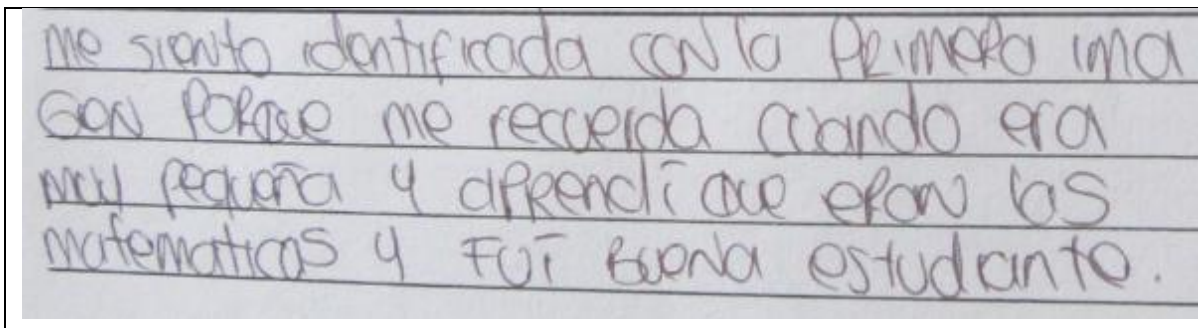 me siento identificada con la Primera ima
Gen Porque me recuerda cuando era
muy pequeña y aprendí que eran las
matematicas y Fuí Buena estudiante.